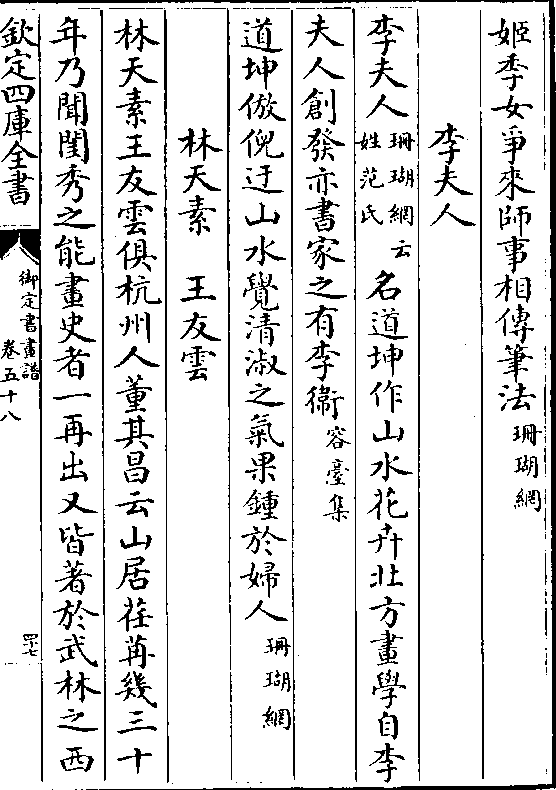 姬季女爭來師事相傳筆法珊瑚網
李夫人
李夫人珊瑚網云姓范氏名道坤作山水花卉北方畫學自李
夫人創發亦書家之有李衞容臺集
道坤倣倪迂山水覺清淑之氣果鍾於婦人珊瑚網
林天素　王友雲
林天素王友雲俱杭州人董其昌云山居荏苒幾三十
年乃聞閨秀之能畫史者一再出又皆著於武林之西
欽定四庫全書
御定書畫譜
卷五十八
四十七